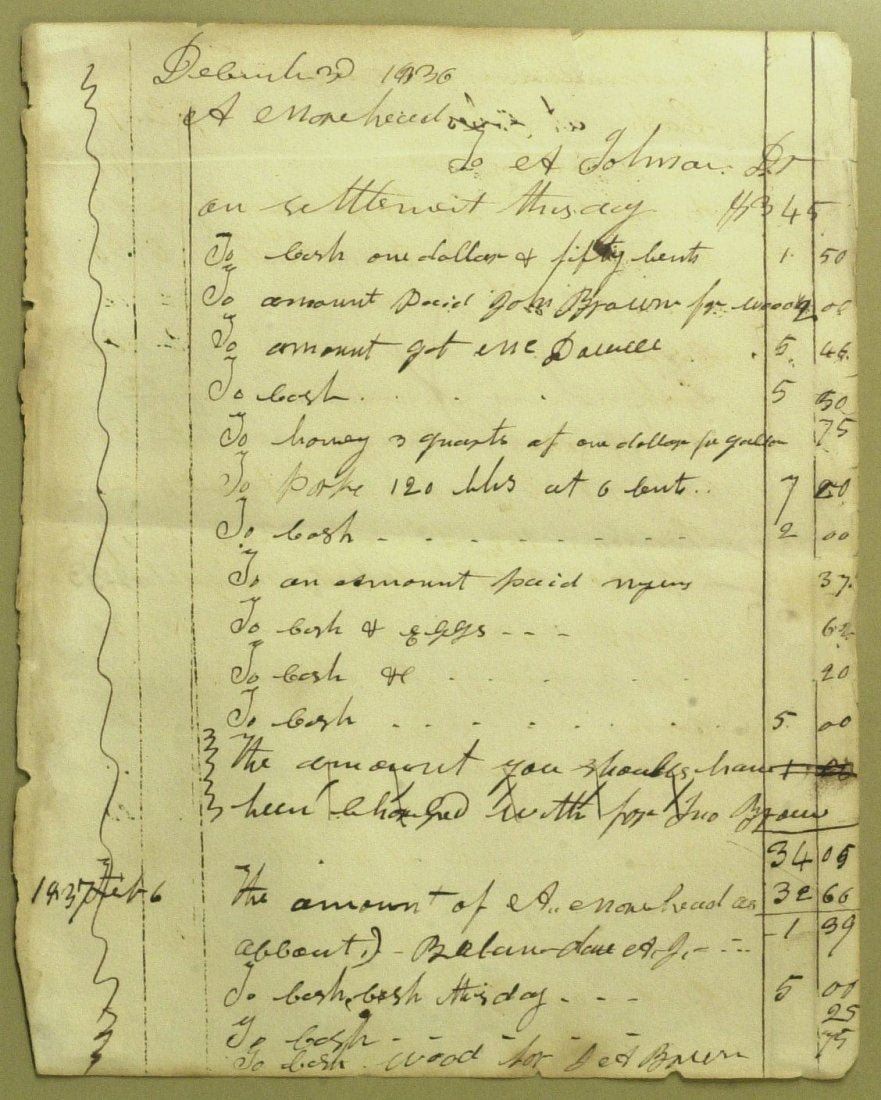 December 3d 1836
A Morehead
To A Tolman Dr
on settlement this day $345
To Cash one dollar & fifty Cents 1 50
To amount paid Jon Brown for wood 2 00
To amount got Mc 5 46
To Cash 5 50
To honey 3 quarts at one dollar per gallon 75
To Porke 120 lbs at 6 Cents 7 20
To Cash 2 00
To an amount paid 37
To Cash & Eggs 62
To Cash &c 20
To Cash 5 00
The amount you should have
been Charged with for Jno Brown
34 05
1837 Feb 6 The amount of A. Morehead as 32 66
abbout) - Balance due A. J. 1 39
To Cash Cash this day 5 00
To Cash 25
To Cash wood for A Brown 75